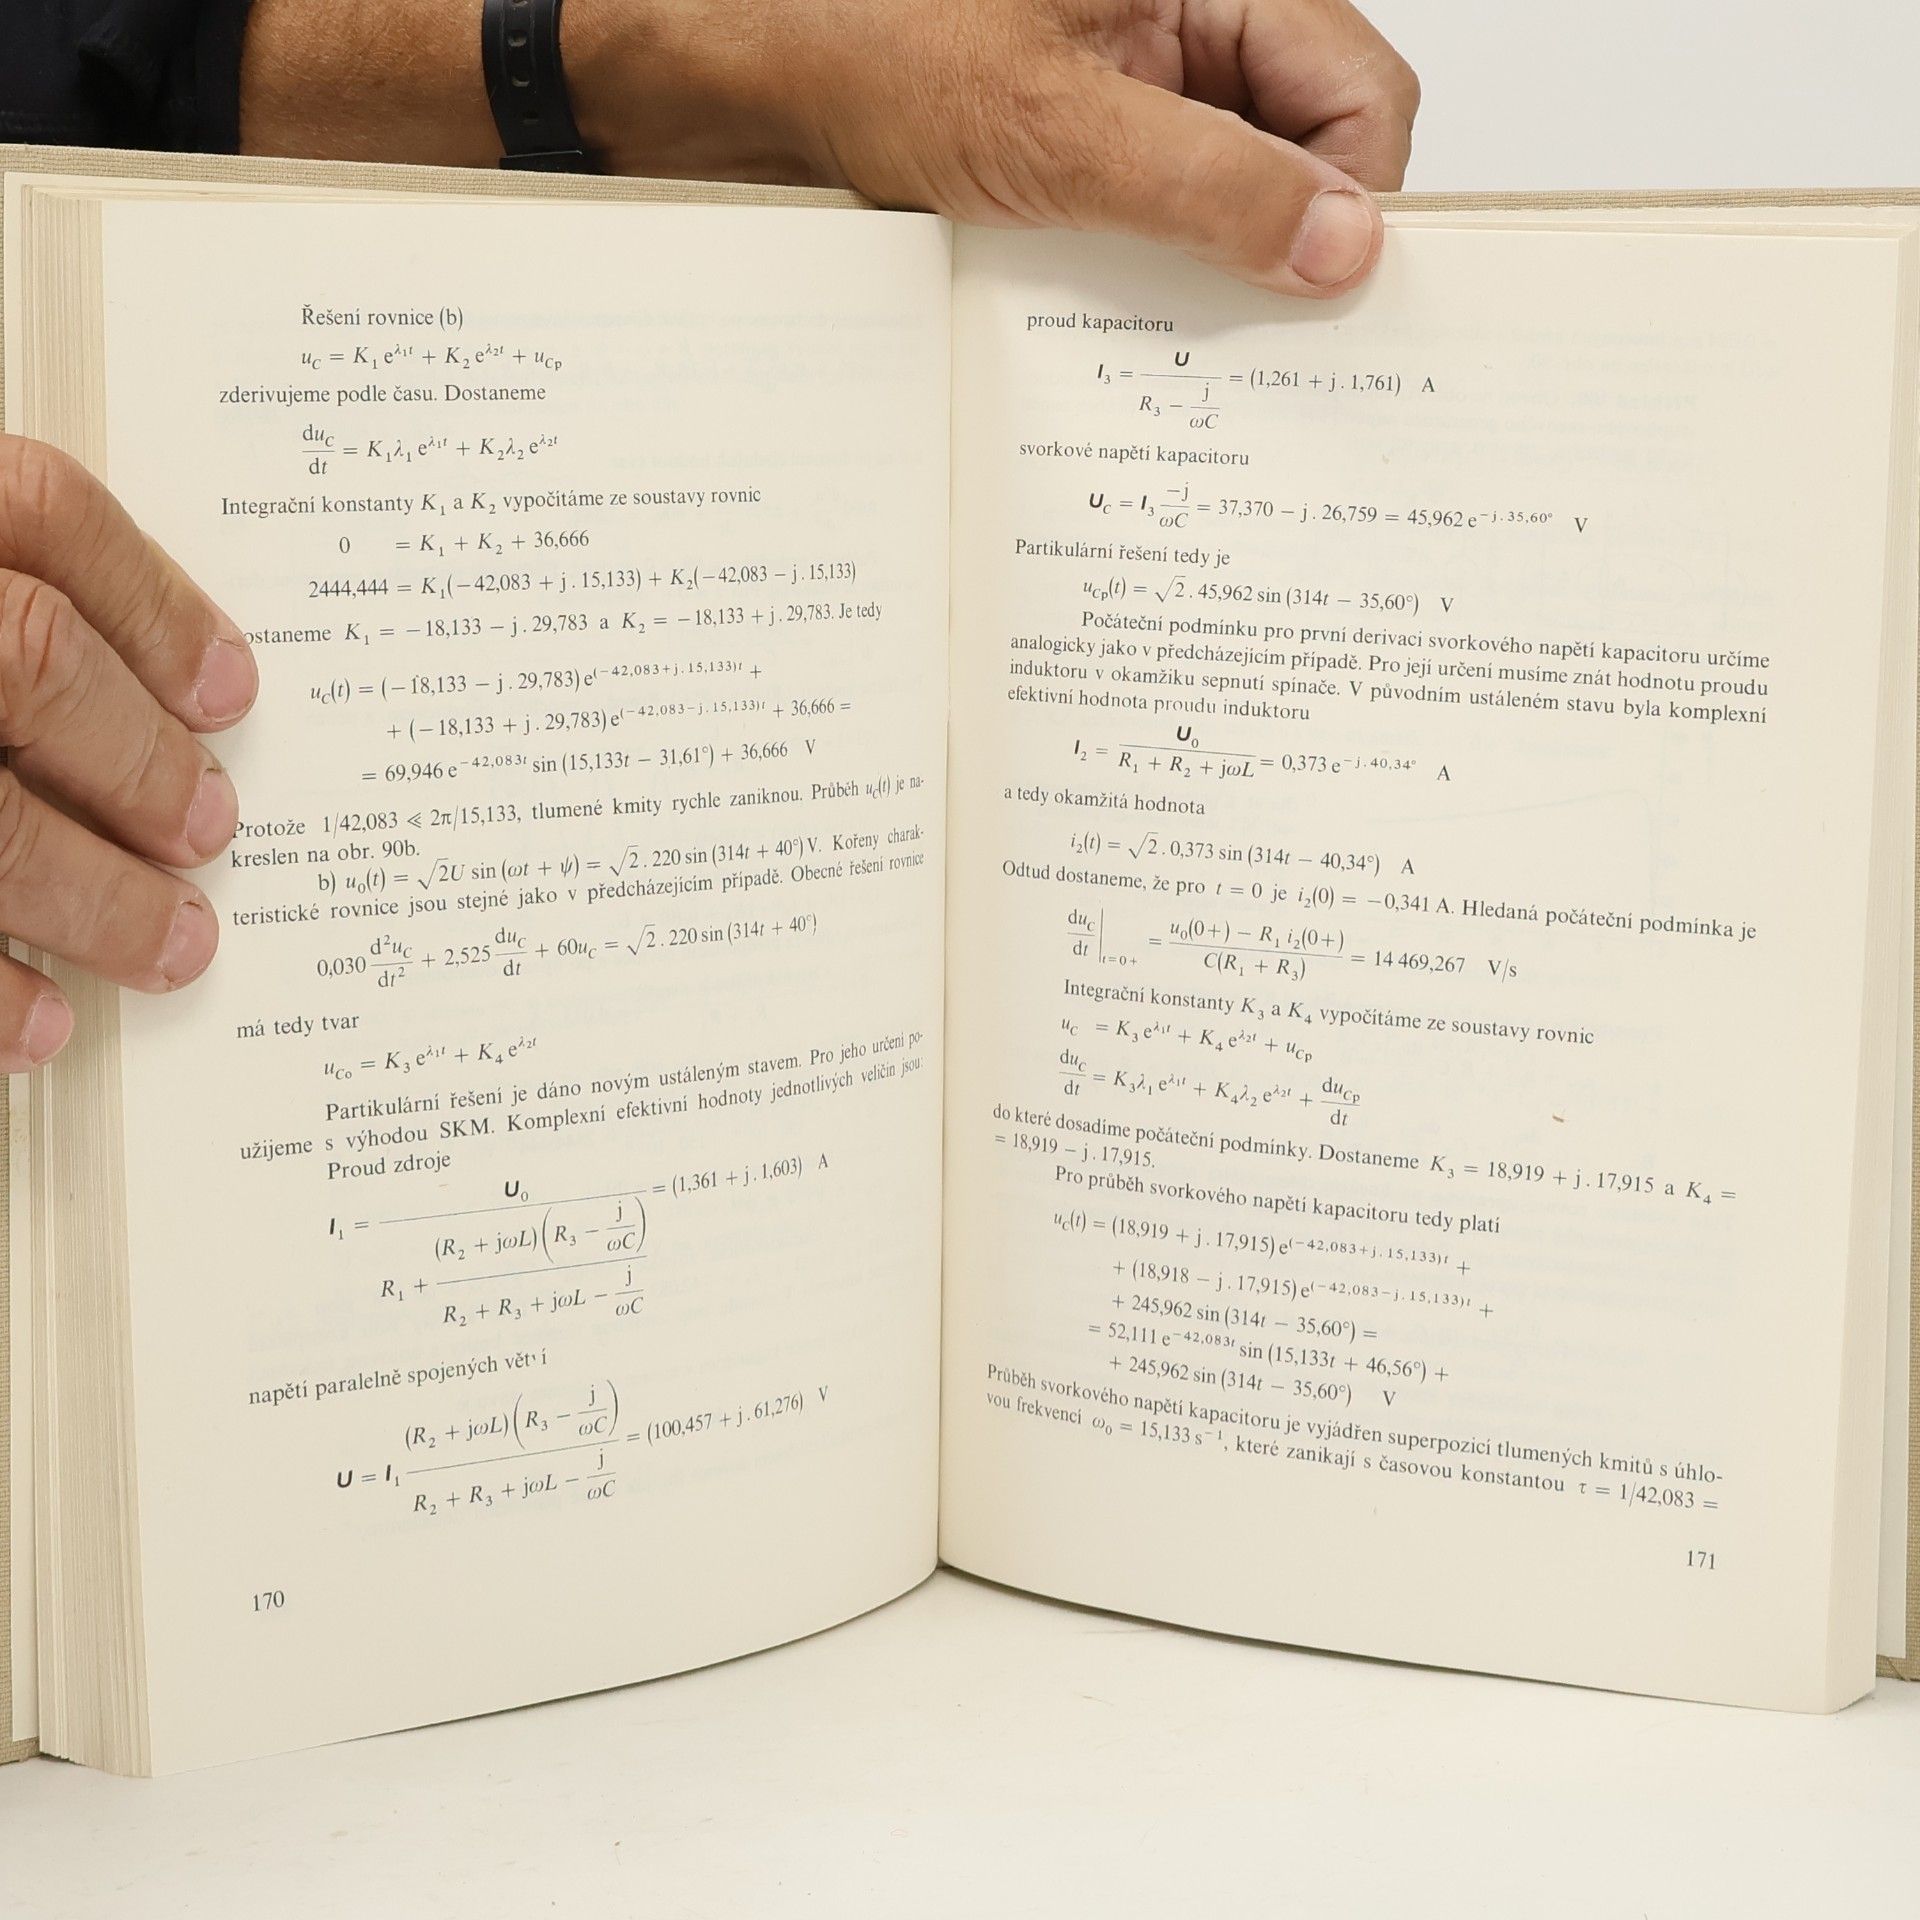 Řešení rovnice (b)
u_C = K_1 e^{λ_1 t} + K_2 e^{λ_2 t} + u_{Cp}
zderivujeme podle času. Dostaneme
du_C/dt = K_1 λ_1 e^{λ_1 t} + K_2 λ_2 e^{λ_2 t}
Integrační konstanty K_1 a K_2 vypočítáme ze soustavy rovnic
0 = K_1 + K_2 + 36,666
2444,444 = K_1(−42,083 + j . 15,133) + K_2(−42,083 − j . 15,133)
ostaneme K_1 = −18,133 − j . 29,783 a K_2 = −18,133 + j . 29,783. Je tedy
u_C(t) = (−18,133 − j . 29,783) e^{(−42,083+j . 15,133)t} +
+ (−18,133 + j . 29,783) e^{(−42,083−j . 15,133)t} + 36,666 =
= 69,946 e^{−42,083t} sin (15,133t − 31,61°) + 36,666 V
Protože 1/42,083 ≪ 2π/15,133, tlumené kmity rychle zaniknou. Průběh u_C(t) je na-
kreslen na obr. 90b.
b) u_0(t) = √2U sin (ωt + ψ) = √2 . 220 sin (314t + 40°) V. Kořeny charak-
teristické rovnice jsou stejné jako v předcházejícím případě. Obecné řešení rovnice
0,030 d²u_C/dt² + 2,525 du_C/dt + 60u_C = √2 . 220 sin (314t + 40°)
má tedy tvar
u_{Co} = K_3 e^{λ_1 t} + K_4 e^{λ_2 t}
Partikulární řešení je dáno novým ustáleným stavem. Pro jeho určení po-
užijeme s výhodou SKM. Komplexní efektivní hodnoty jednotlivých veličin jsou:
Proud zdroje
I_1 = U_0 / (R_1 + (R_2 + jωL)(R_3 − j/ωC) / (R_2 + R_3 + jωL − j/ωC)) = (1,361 + j . 1,603) A
napětí paralelně spojených větví
U = I_1 (R_2 + jωL)(R_3 − j/ωC) / (R_2 + R_3 + jωL − j/ωC) = (100,457 + j . 61,276) V
170
proud kapacitoru
I_3 = U / (R_3 − j/ωC) = (1,261 + j . 1,761) A
svorkové napětí kapacitoru
U_C = I_3 −j/ωC = 37,370 − j . 26,759 = 45,962 e^{−j . 35,60°} V
Partikulární řešení tedy je
u_{Cp}(t) = √2 . 45,962 sin (314t − 35,60°) V
Počáteční podmínku pro první derivaci svorkového napětí kapacitoru určíme
analogicky jako v předcházejícím případě. Pro její určení musíme znát hodnotu proudu
induktoru v okamžiku sepnutí spínače. V původním ustáleném stavu byla komplexní
efektivní hodnota proudu induktoru
I_2 = U_0 / (R_1 + R_2 + jωL) = 0,373 e^{−j . 40,34°} A
a tedy okamžitá hodnota
i_2(t) = √2 . 0,373 sin (314t − 40,34°) A
Odtud dostaneme, že pro t = 0 je i_2(0) = −0,341 A. Hledaná počáteční podmínka je
du_C/dt |_{t=0+} = (u_0(0+) − R_1 i_2(0+)) / (C(R_1 + R_3)) = 14 469,267 V/s
Integrační konstanty K_3 a K_4 vypočítáme ze soustavy rovnic
u_C = K_3 e^{λ_1 t} + K_4 e^{λ_2 t} + u_{Cp}
du_C/dt = K_3 λ_1 e^{λ_1 t} + K_4 λ_2 e^{λ_2 t} + du_{Cp}/dt
do které dosadíme počáteční podmínky. Dostaneme K_3 = 18,919 + j . 17,915 a K_4 =
= 18,919 − j . 17,915.
Pro průběh svorkového napětí kapacitoru tedy platí
u_C(t) = (18,919 + j . 17,915) e^{(−42,083+j . 15,133)t} +
+ (18,918 − j . 17,915) e^{(−42,083−j . 15,133)t} +
+ 245,962 sin (314t − 35,60°) =
= 52,111 e^{−42,083t} sin (15,133t + 46,56°) +
+ 245,962 sin (314t − 35,60°) V
Průběh svorkového napětí kapacitoru je vyjádřen superpozicí tlumených kmitů s úhlo-
vou frekvencí ω_0 = 15,133 s^{−1}, které zanikají s časovou konstantou τ = 1/42,083 =
171